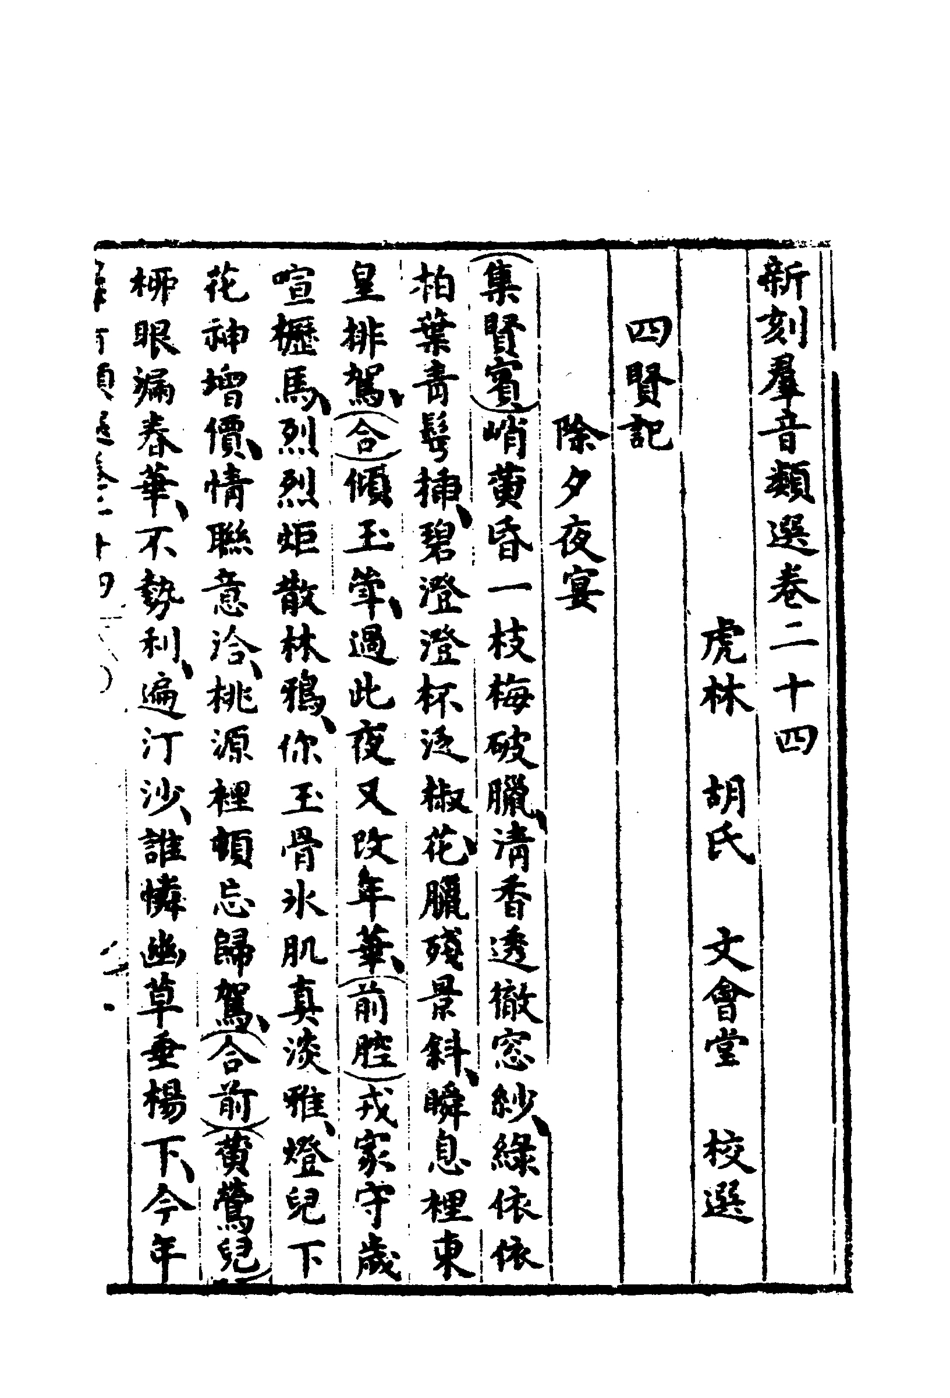 新刻羣音類選卷二十四
虎林　胡氏　文會堂　校選
四賢記
除夕夜宴
集賢賓峭黃昏一枝梅破臘、清香透徹窓紗、綠依依
柏葉青髩插、碧澄澄杯泛椒花、臘殘景斜、瞬息裡東
皇排駕、合傾玉斝、過此夜又改年華、前腔戎家守歲
喧櫪馬、烈烈炬散林鴉、你玉骨氷肌真淡雅、燈兒下
花神增價、情聯意洽、桃源裡頓忘歸駕、合前黃鶯兒
柳眼漏春華、不勢利、遍汀沙、誰憐幽草垂楊下、今年